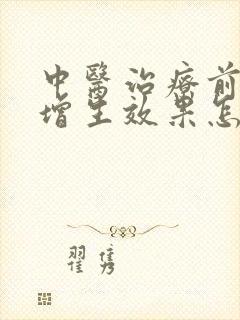 中醫治療前
增生效果怎
翟隽